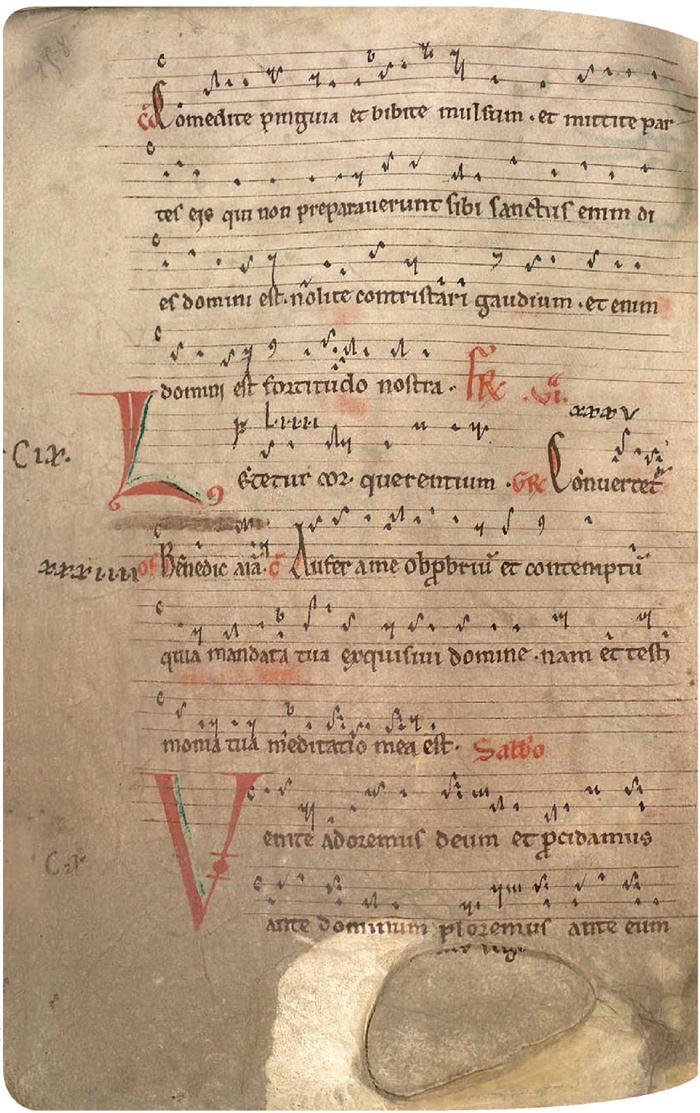 Comedite pinguia et bibite mulsum · et mittite par
tes eis qui non preparauerunt sibi sanctus enim di
es domini est · nolite contristari gaudium · et enim
domini est fortitudo nostra · 
Cix.
Letetur cor querentium · Gr Conuertet
xxxiiii of Benedic aīa · c̄ Aufer a me obprobriū et contemptū
quia mandata tua exquisiui domine · nam et testi
monia tua meditatio mea est · Sabbo
Venite adoremus deum et procidamus
ante dominum ploremus ante eum